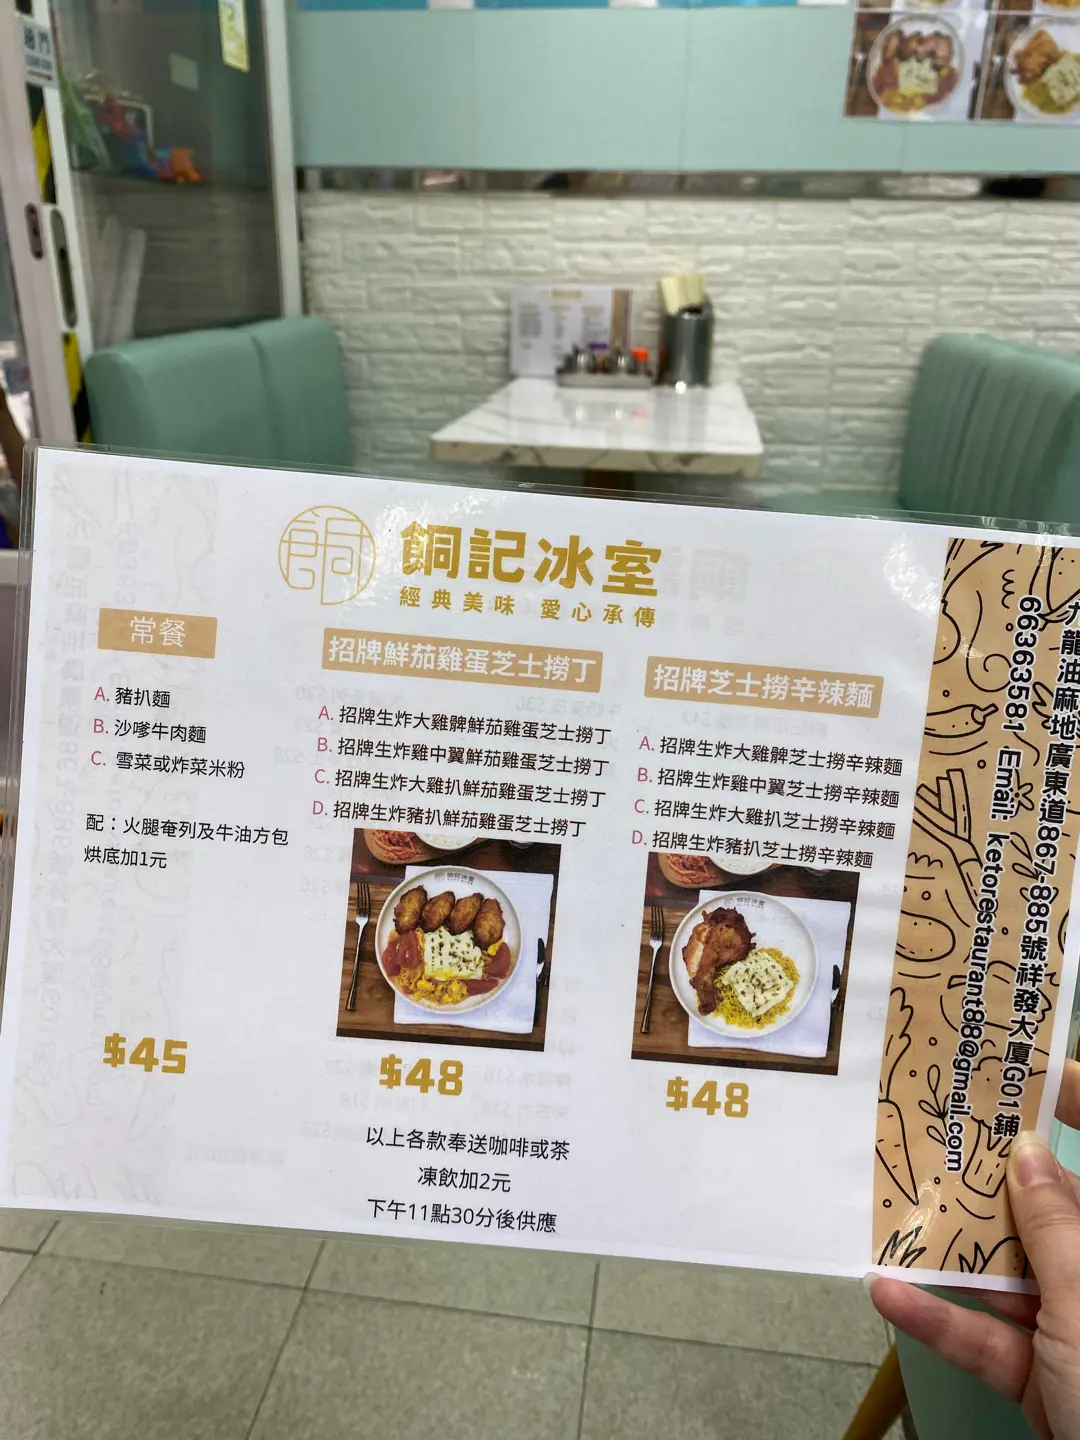 餇記冰室
經典美味 愛心承傳
常餐
A. 豬扒麵
B. 沙嗲牛肉麵
C. 雪菜或炸菜米粉
配：火腿奄列及牛油方包
烘底加1元
$45
招牌鮮茄雞蛋芝士撈丁
A. 招牌生炸大雞髀鮮茄雞蛋芝士撈丁
B. 招牌生炸雞中翼鮮茄雞蛋芝士撈丁
C. 招牌生炸大雞扒鮮茄雞蛋芝士撈丁
D. 招牌生炸豬扒鮮茄雞蛋芝士撈丁
$48
招牌芝士撈辛辣麵
A. 招牌生炸大雞髀芝士撈辛辣麵
B. 招牌生炸雞中翼芝士撈辛辣麵
C. 招牌生炸大雞扒芝士撈辛辣麵
D. 招牌生炸豬扒芝士撈辛辣麵
$48
以上各款奉送咖啡或茶
凍飲加2元
下午11點30分後供應
九龍油麻地廣東道867-885號祥發大廈G01鋪
66363581 Email: ketorestaurant88@gmail.com